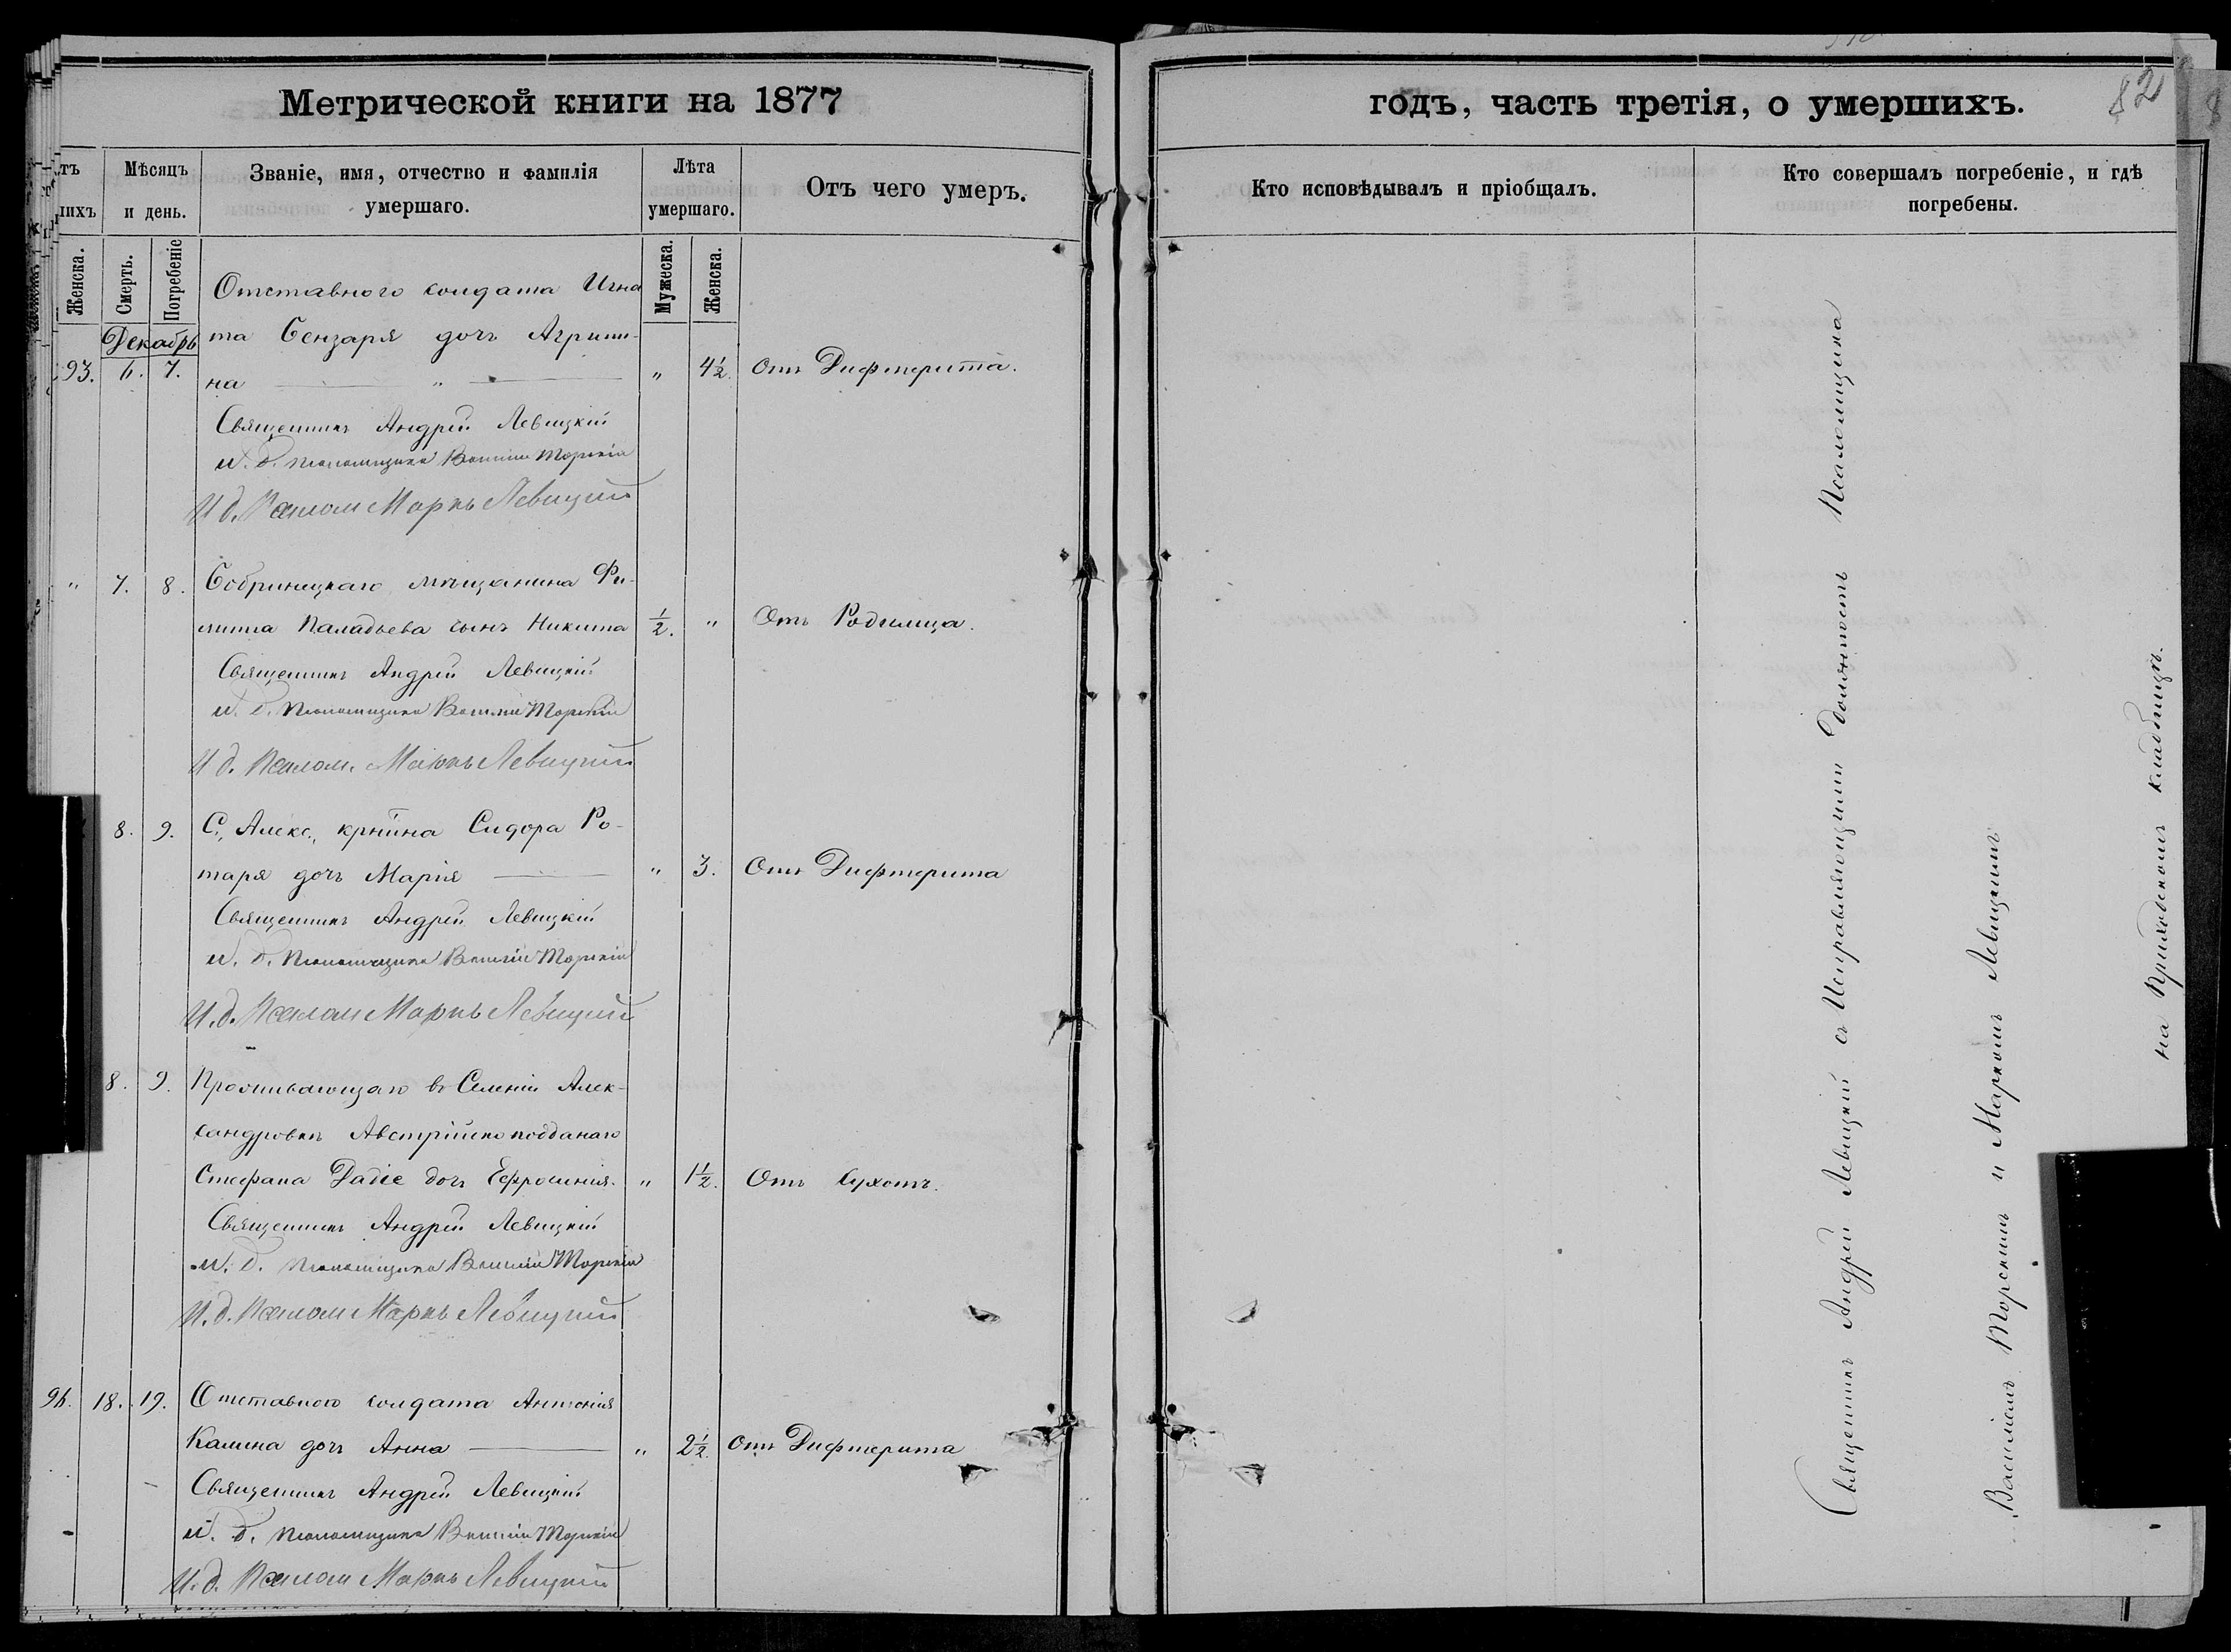 Метрической книги на 1877
годъ, часть третія, о умершихъ.
82
Мѣсяцъ и день.
Званіе, имя, отчество и фамилія умершаго.
Лѣта умершаго.
Отъ чего умеръ.
Кто исповѣдывалъ и пріобщалъ.
Кто совершалъ погребеніе, и гдѣ погребены.
Женска.
Смерть.
Погребеніе
Мужеска.
Женска.
Декабрь
Отставного солдата Игна
та Бензаря дочь Агрипи-
93. 6. 7. на " " 4½. Отъ Дифтерита.
Священникъ Андрей Левицкій
и. д. псаломщика Василій Торскій
И д. Псалом Маркъ Левицкій
" 7. 8. Бобринецкаго мѣщанина Фи-
липпа Паладьева сынъ Никита ½. " Отъ Родимца.
Священникъ Андрей Левицкій
и. д. псаломщика Василій Торскій
И д. Псалом. Маркъ Левицкій
8. 9. С. Алекс. крнина Сидора Ро-
таря дочь Марія " 3. Отъ Дифтерита
Священникъ Андрей Левицкій
и. д. псаломщика Василій Торскій
И. д. Псалом Маркъ Левицкій
8. 9. Проживающаго въ Селеніи Алек-
сандровкѣ Австрійско подданаго
Стефана Радіе дочь Ефросинія. " 1½. Отъ Сухотъ.
Священникъ Андрей Левицкій
и. д. псаломщика Василій Торскій
И. д. Псалом Маркъ Левицкій
96. 18. 19. Отставного солдата Антонія
Калина дочь Анна " 2½. Отъ Дифтерита
Священникъ Андрей Левицкій
и. д. псаломщика Василій Торскій
И. д. Псалом Маркъ Левицкій
Священникъ Андрей Левицкій съ Исправляющими Должность Псаломщика
Василіемъ Торскимъ и Маркомъ Левицкимъ
на Приходскомъ кладбищѣ.